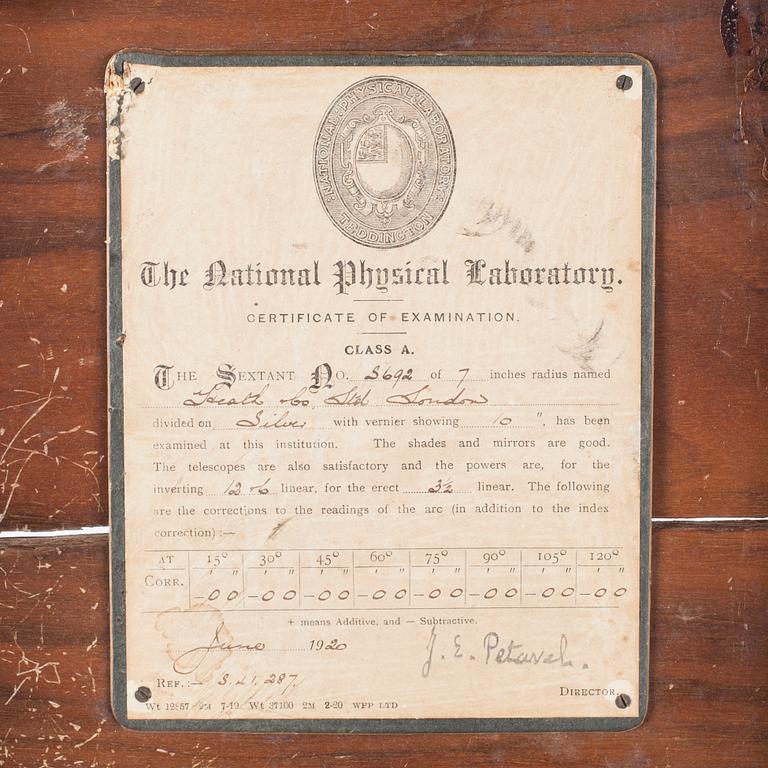 NATIONAL·PHYSICAL·LABORATORY·
TEDDINGTON
The National Physical Laboratory.
CERTIFICATE OF EXAMINATION.
CLASS A.
THE SEXTANT NO. S692 of 7 inches radius named
Heath & Co. Ltd London
divided on Silver with vernier showing 10 ", has been
examined at this institution. The shades and mirrors are good.
The telescopes are also satisfactory and the powers are, for the
inverting 12 & 6 linear, for the erect 3½ linear. The following
are the corrections to the readings of the arc (in addition to the index
correction) :—
AT 15° 30° 45° 60° 75° 90° 105° 120°
' " ' " ' " ' " ' " ' " ' " ' "
CORR. -0 0 -0 0 -0 0 -0 0 -0 0 -0 0 -0 0 -0 0
+ means Additive, and — Subtractive.
June 1920
J. E. Petavel.
REF. :— S 21,287.
DIRECTOR.
Wt 12857 2M 7-19 Wt 37100 2M 2-20 WFP LTD